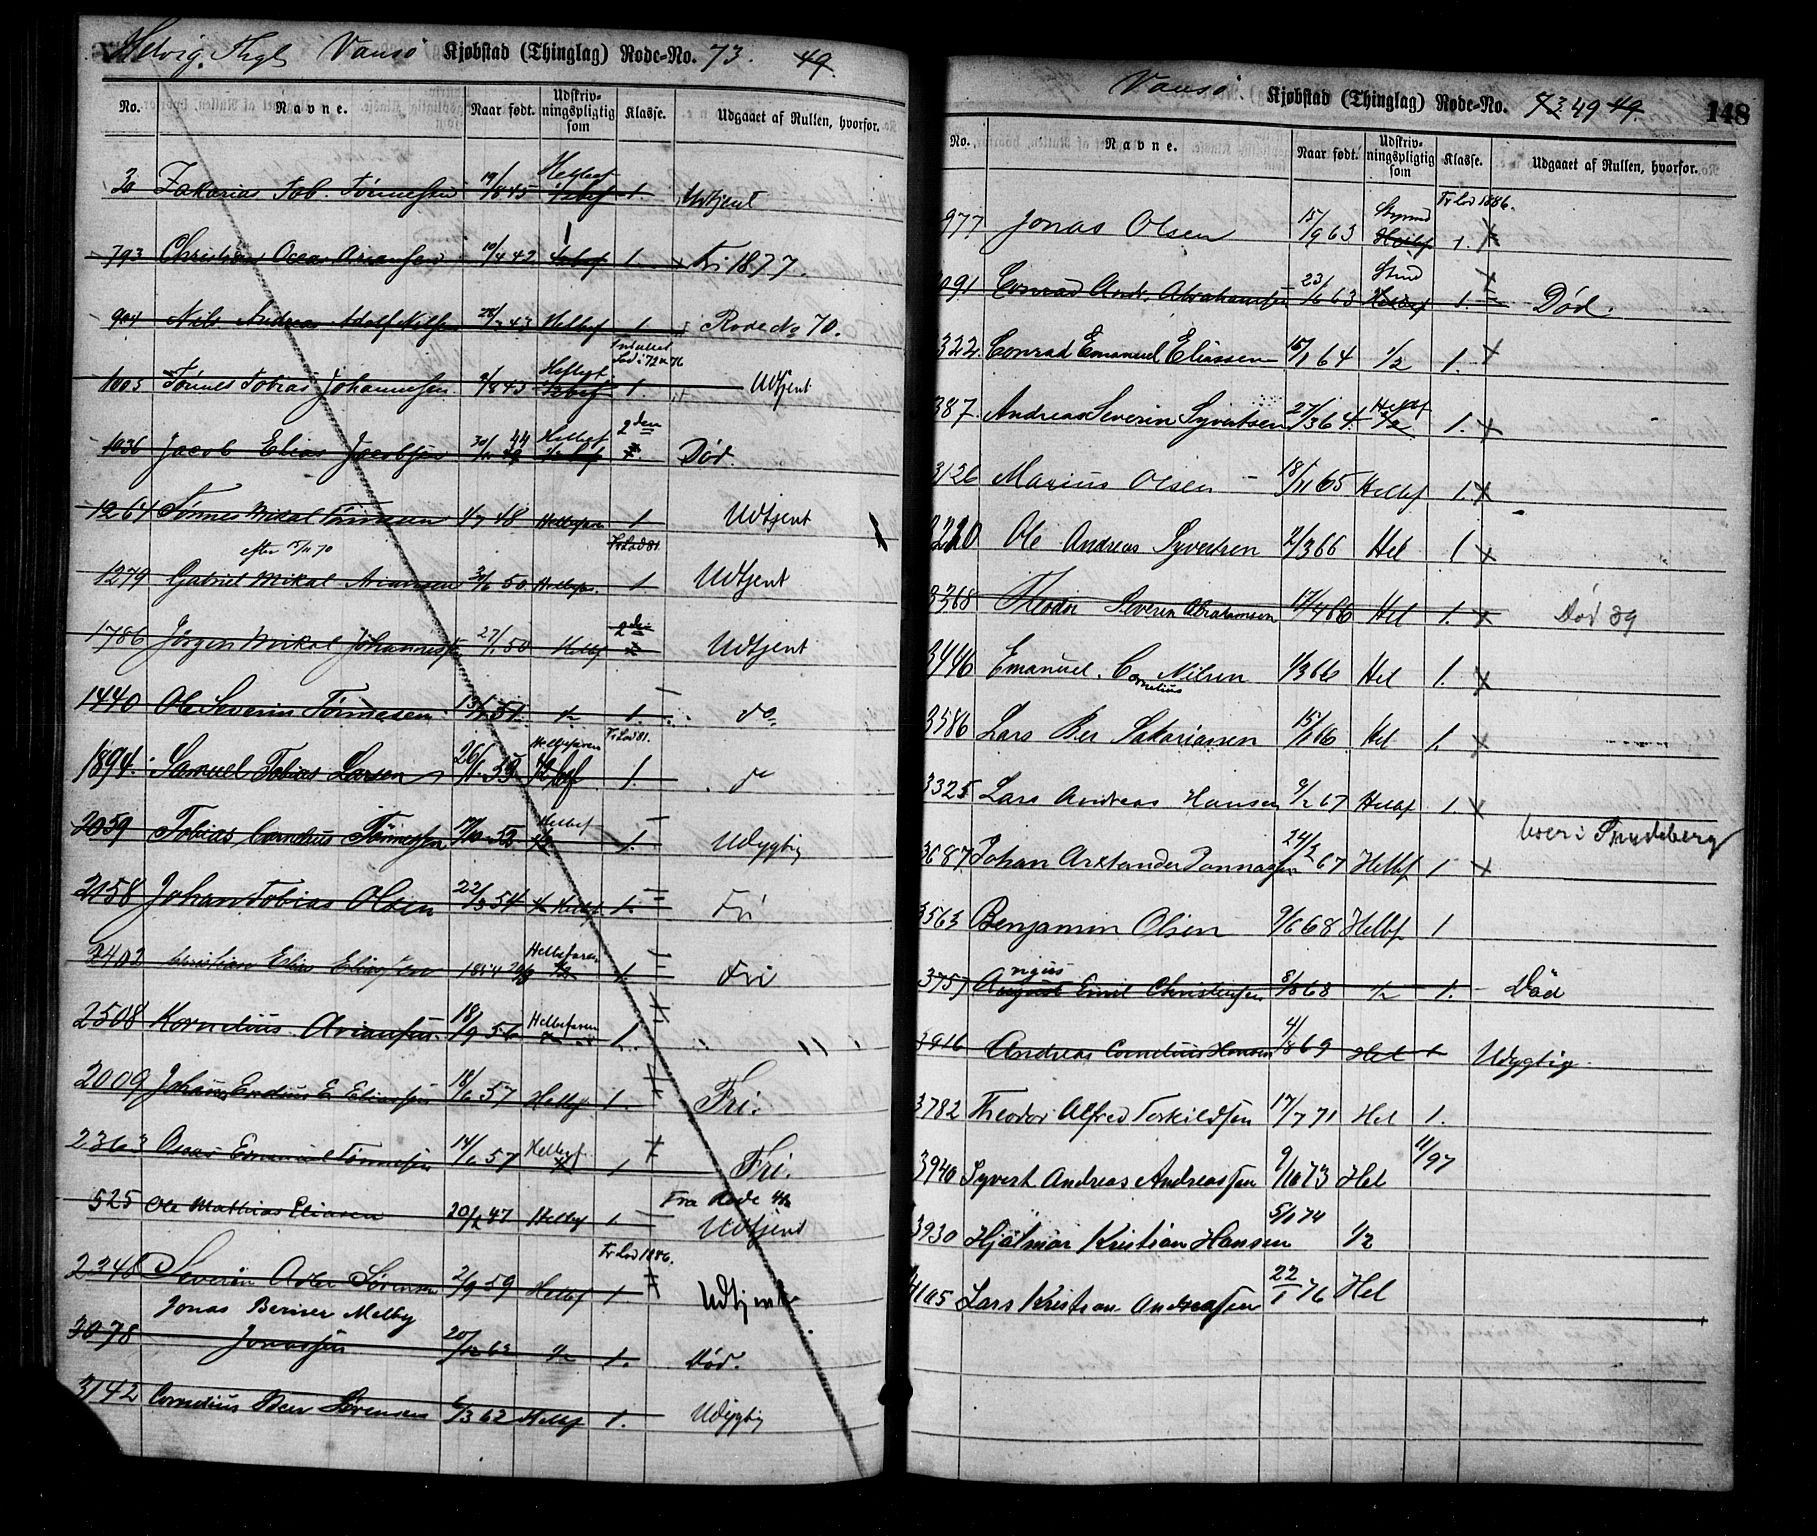 Helvig. Thgl Vansø Kjøbstad (Thinglag) Rode-No. 73. 49.
No. Navne. Naar født. Udskriv-ningspligtig som Klasse. Udgaaet af Rullen, hvorfor.
30 Zakarias Tob. Tønnesen 19/8 45 Helbef 1. Udtjent
793 Christian Oceas Ariansen 10/4 42 1. Fri 1877.
904 Nils Andreas Adolf Nilsen 43 Helbef 1 Rode No 70.
1003 Tønnes Tobias Johannesen 9/8 43 Helbef 1. Udtjent
1036 Jacob Elias Jacobsen 44 Helbef 2den Død.
1264 Tønnes Mikal Tønnesen 4/7 48 Helbefaren 1 Udtjent
efter 15/11 70 Fr Lod 81.
1279 Gabriel Mikal Ariansen 50 Helbefa. 1 Udtjent
1786 Jørgen Mikal Johannesen 27/1 50 Helbf 2den Udtjent
1440 Ole Severin Tønnesen 51. 1/2 1. do
1894. Samuel Tobias Larsen 26/1 53 Helbefaren Fr Lod 81. 1. do
2059 Tobias Cornelius Tønnesen 17/10 52 Helbef 1. Udygtig
2158 Johan Tobias Olsen 22/3 54 Helbf 1. Fri
2402 Christian Elias Eliassen 1854 Helbefaren 1. Fri
2508 Kornelius Ariansen 18/9 56 Helbefaren 1. "
2009 Johan E. Eliassen 18/6 57 Helbef 1. Fri.
2363 Oskar Emanuel Tønnesen 14/6 57 Helbef. 1 Fri.
525 Ole Mathias Eliasen 20/2 47 Helbf 1 Fra Rode Udtjent
Fr Lod 1886.
2348 Severin Adler Sørensen 2/9 59 Helbef 1. Udtjent
Jonas Berner Melby
3078 Jonassen 20/12 62 1/2 1. Død.
3142 Cornelius Ber Sørensen 6/3 62 Helbf 1. Udygtig
Vansø Kjøbstad (Thinglag) Rode-No. 73 49 49. 148
No. Navne. Naar født. Udskriv-ningspligtig som Klasse. Udgaaet af Rullen, hvorfor.
Fr Lod 1886.
977 Jonas Olsen 15/9 63 Helbf 1. x
091 Conrad And. Abrahamsen 23/6 63 1. Død.
322. Conrad Emanuel Eliassen 16/1 64 1/2 1. x
387. Andreas Severin Syvertsen 27/3 64 Helbf 1/2 1. x
3126 Marius Olsen 18/11 65 Helbf 1. x
2210 Ole Andreas Syvertsen 2/3 66 Hel 1 x
3368 Theodor Severin Abrahamsen 17/4 86 Hel 1. x Død 89
3446 Emanuel Cornelius Nilsen 1/3 66 Hel 1. x
3586 Lars Ber Sakariasen 15/1 66 Hel 1. x
3325 Lars Andreas Hansen 9/2 67 Helbf 1. x
boer i
3687 Johan 24/2 67 Helbf 1 x
3563 Benjamin Olsen 9/6 68 Helbf 1
3757 August Emil Christensen 8/8 68 1/2 1. Død
3916 Andreas Cornelius Hansen 4/8 69 Hel 1 Udygtig
3782 Theodor Alfred Torkildsen 17/7 71 Hel 1.
3940 Syvert Andreas Andreassen 9/10 73 Hel 11/97
3930 Hjalmar Kristian Hansen 5/1 74 1/2
4105 Lars Kristian Andreassen 22/1 76 Hel